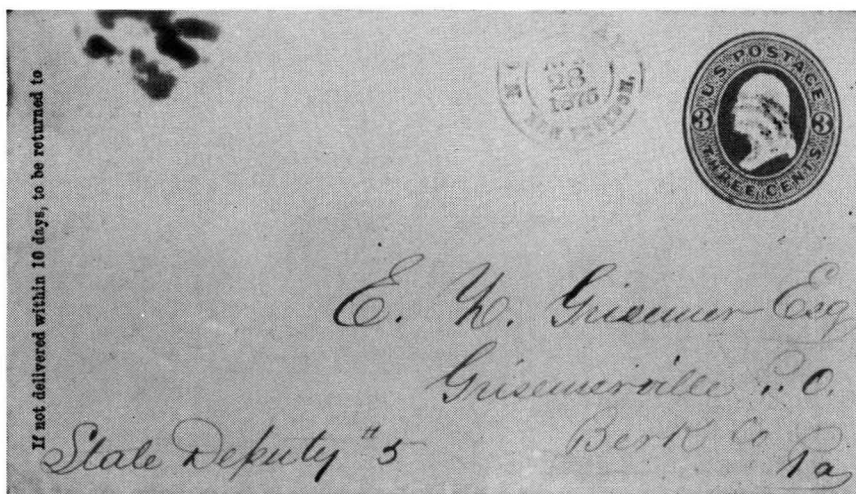 If not delivered within 10 days, to be returned to
28
1875
U.S. POSTAGE
3 3
THREE CENTS
E. Grisemer Esq
Grisemerville P.O.
Berk Co
Pa
State Deputy #5